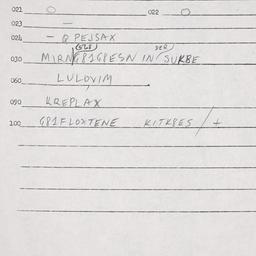 021 O 022 O
023 —
024 — Q PEJSAX
030 MIRNG81G8ESN IN SUKBE
060 LULOVIM
090 KREPLAX
100 G81FLOXTENE KITK8ES / +